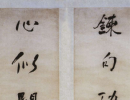 鍊句功
心似